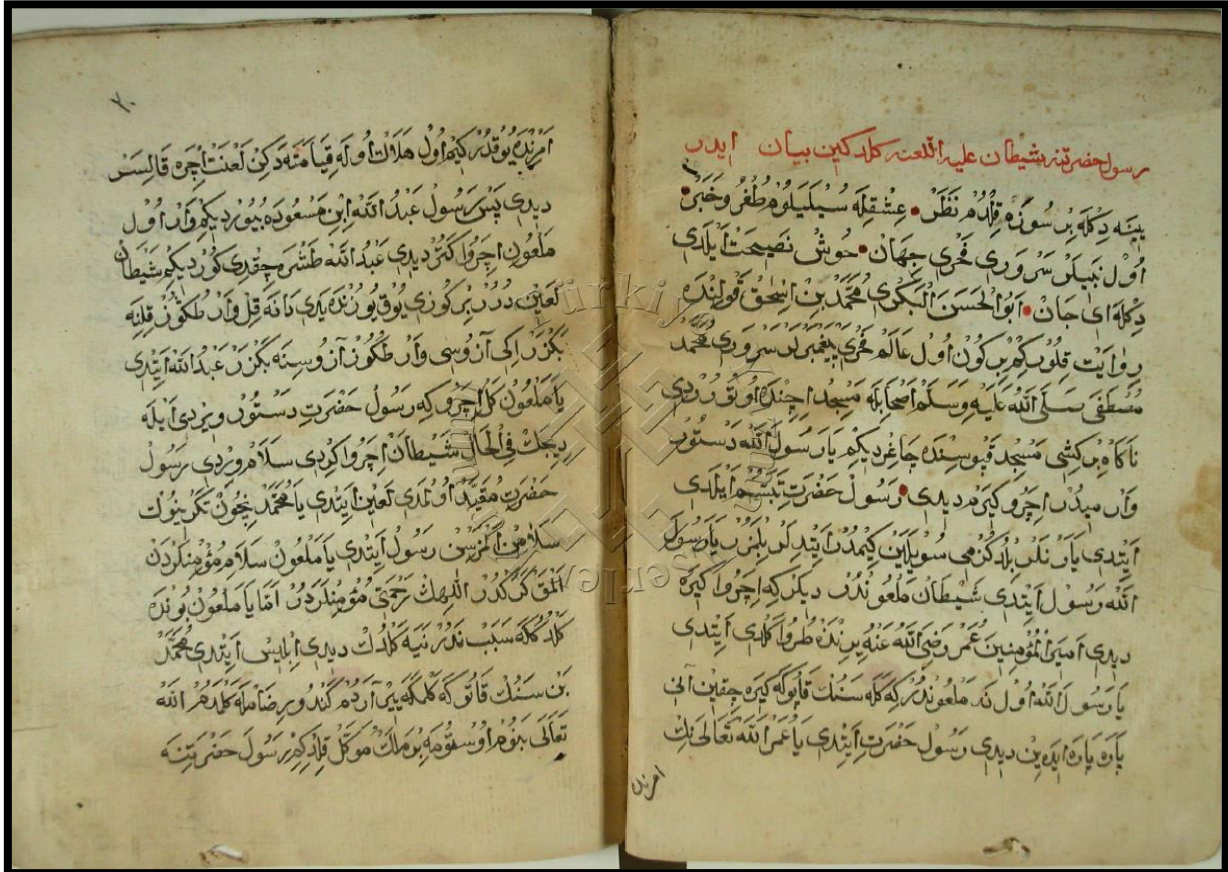 رسول حضرتنه شیطان علیه اللعنه کلدکین بیان ایدر
ینه دکله بر سوزه قلدم نظر عشقله سیلیلوم طغر و خبر
اول نبیلر سروری فخری جهان خوش نصیحت ایلدی
دکله ای جان ابو الحسن البکری محمد بن اسحق قولنده
روایت قلور کم بر کون اول عالم فخری پیغمبرلر سروری محمد
مصطفی صلی الله علیه وسلم اصحابله مسجد اچنده اوتوررردی
ناکاه بر کشی مسجد قپوسنده چاغردیکم یا رسول الله دستور
وار میدر اچرو کیرم دیدی رسول حضرت تبسم ایلدی
ایتدی یارنلر بلدکزمی سویلین کیمدر ایتدلر بلمزز یا رسول
الله رسول ایتدی شیطان ملعوندر دیلرکه اچروا کیره
دیدی امیر المؤمنین عمر رضی الله عنه یرندن طروا کلدی ایتدی
یا رسول الله اول نه ملعوندرکه کله سنك قاپوکه کیره چقین انی
پاره پاره ایده ین دیدی رسول حضرت ایتدی یا عمر الله تعالی نك
امرنده
امرنده یوقدر کیم اول هلاك اوله قیامته دکن لعنت اچره قالیسر
دیدی پس رسول عبد الله ابن مسعوده بیوردیکم وار اول
ملعون اچروا کتر دیدی عبد الله طشره چقدی کوردیکم شیطان
لعین دورر بر کوزی یوق یوزنده یدی دانه قل وار طکوز قلنه
بکزر ایکی آزوسی وار طکوز آزوسنه بکزر عبد الله ایتدی
یا ملعون کل اچروکه رسول حضرت دستور ویردی ایله
دیجك فی الحال شیطان اچروا کردی سلام ویردی رسول
حضرت مقید اولمدی لعین ایتدی یا محمد نیچون تکرینوك
سلامن المزسن رسول ایتدی یا ملعون سلام مؤمنلردن
المق کرکدر اللهك رحمتی مؤمنلردر اما یا ملعون بونده
کلدوککه سبب ندر نیه کلدك دیدی ابلیس ایتدی محمد
بن سنك قاتوکه کلمکه یر اردم کندو رضامله کلمدم الله
تعالی بنوم اوستومه بر ملك موکل قلدکر رسول حضرتنه